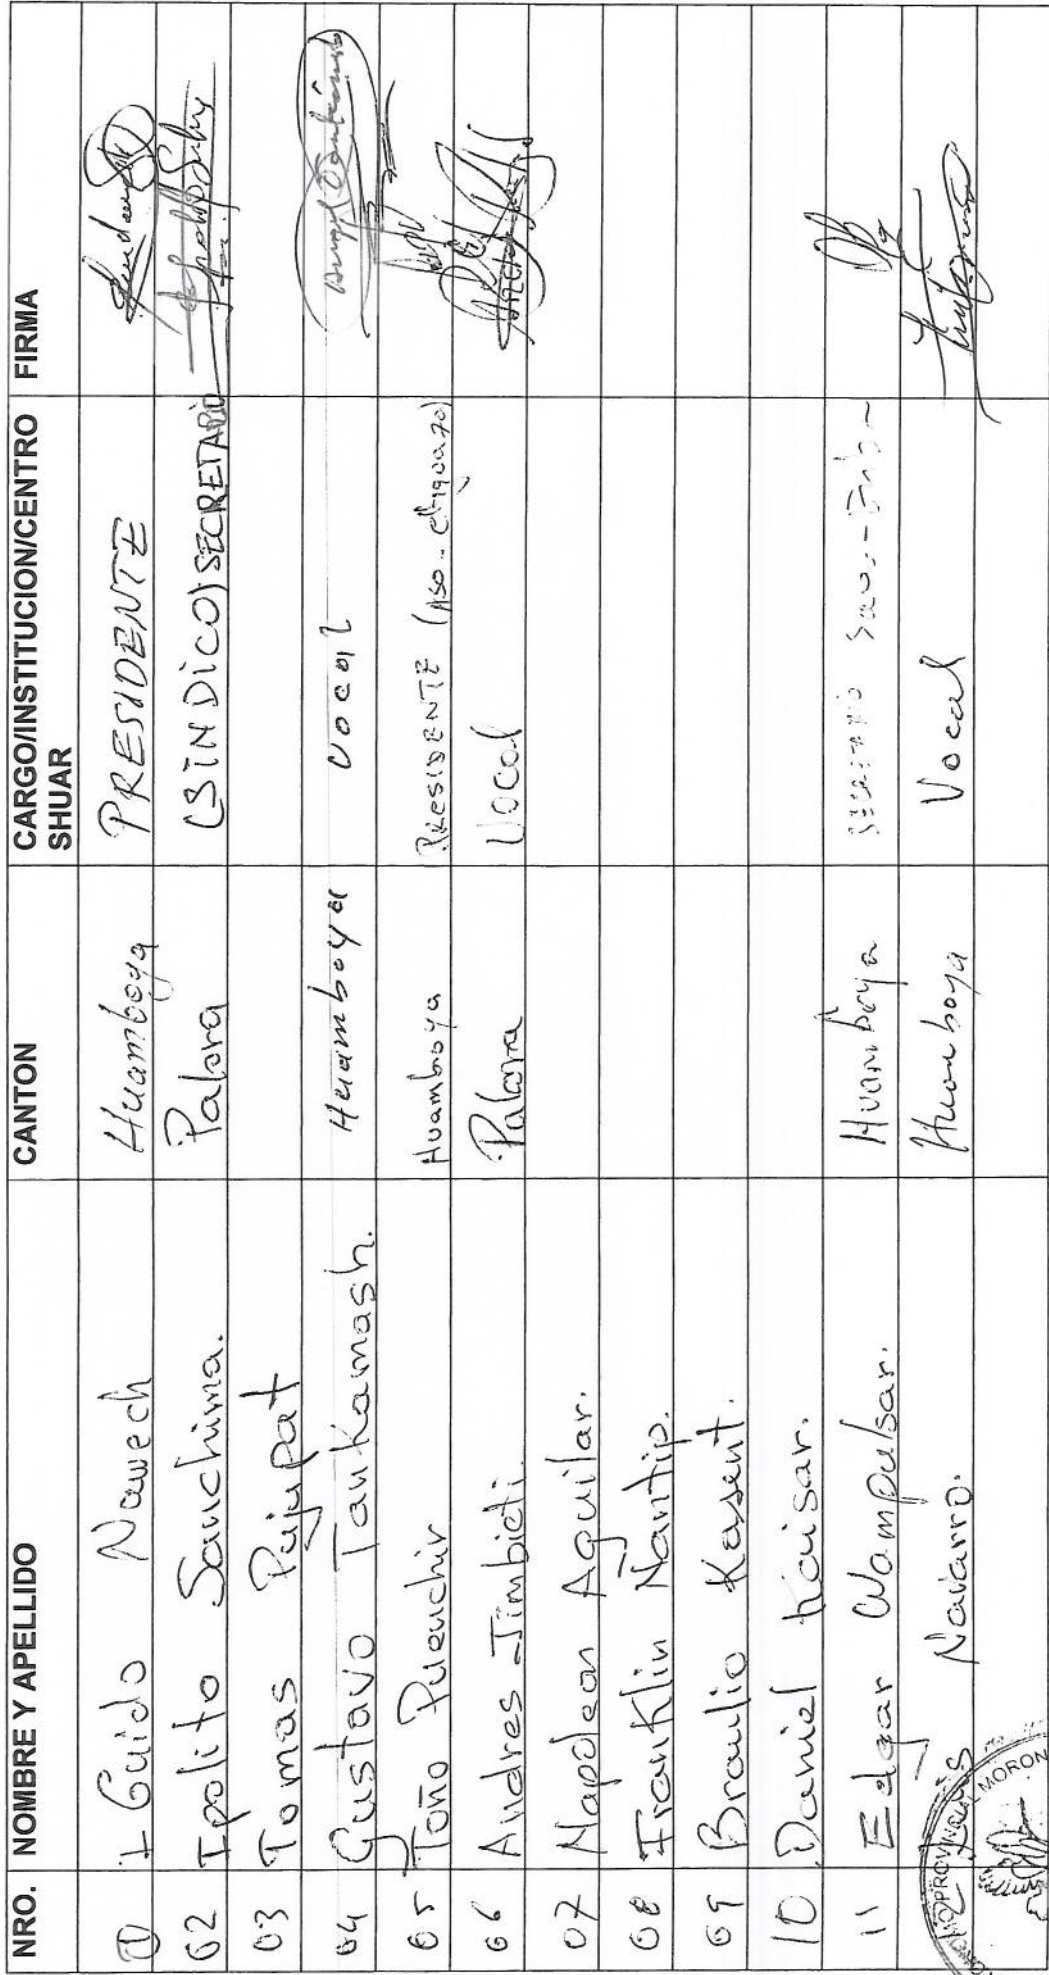 NRO. NOMBRE Y APELLIDO CANTON CARGO/INSTITUCION/CENTRO SHUAR FIRMA
01 Guido Nawech Huamboya PRESIDENTE
02 Ipolito Sanchima. Palora (SINDICO) SECRETARIO
03 Tomas Pujupat
04 Gustavo Tankamash. Huamboya vocal
05 Toño Puenchir Huamboya PRESIDENTE (Aso. Chiguaza)
06 Andres Jimbicti. Palora Vocal
07 Napoleon Aguilar.
08 Franklin Nantip.
09 Braulio Kasent.
10 Daniel Kaisar.
11 Edgar Wampulsar. Huamboya
12 Navarro. Huamboya Vocal
PROVINCIAL MORON